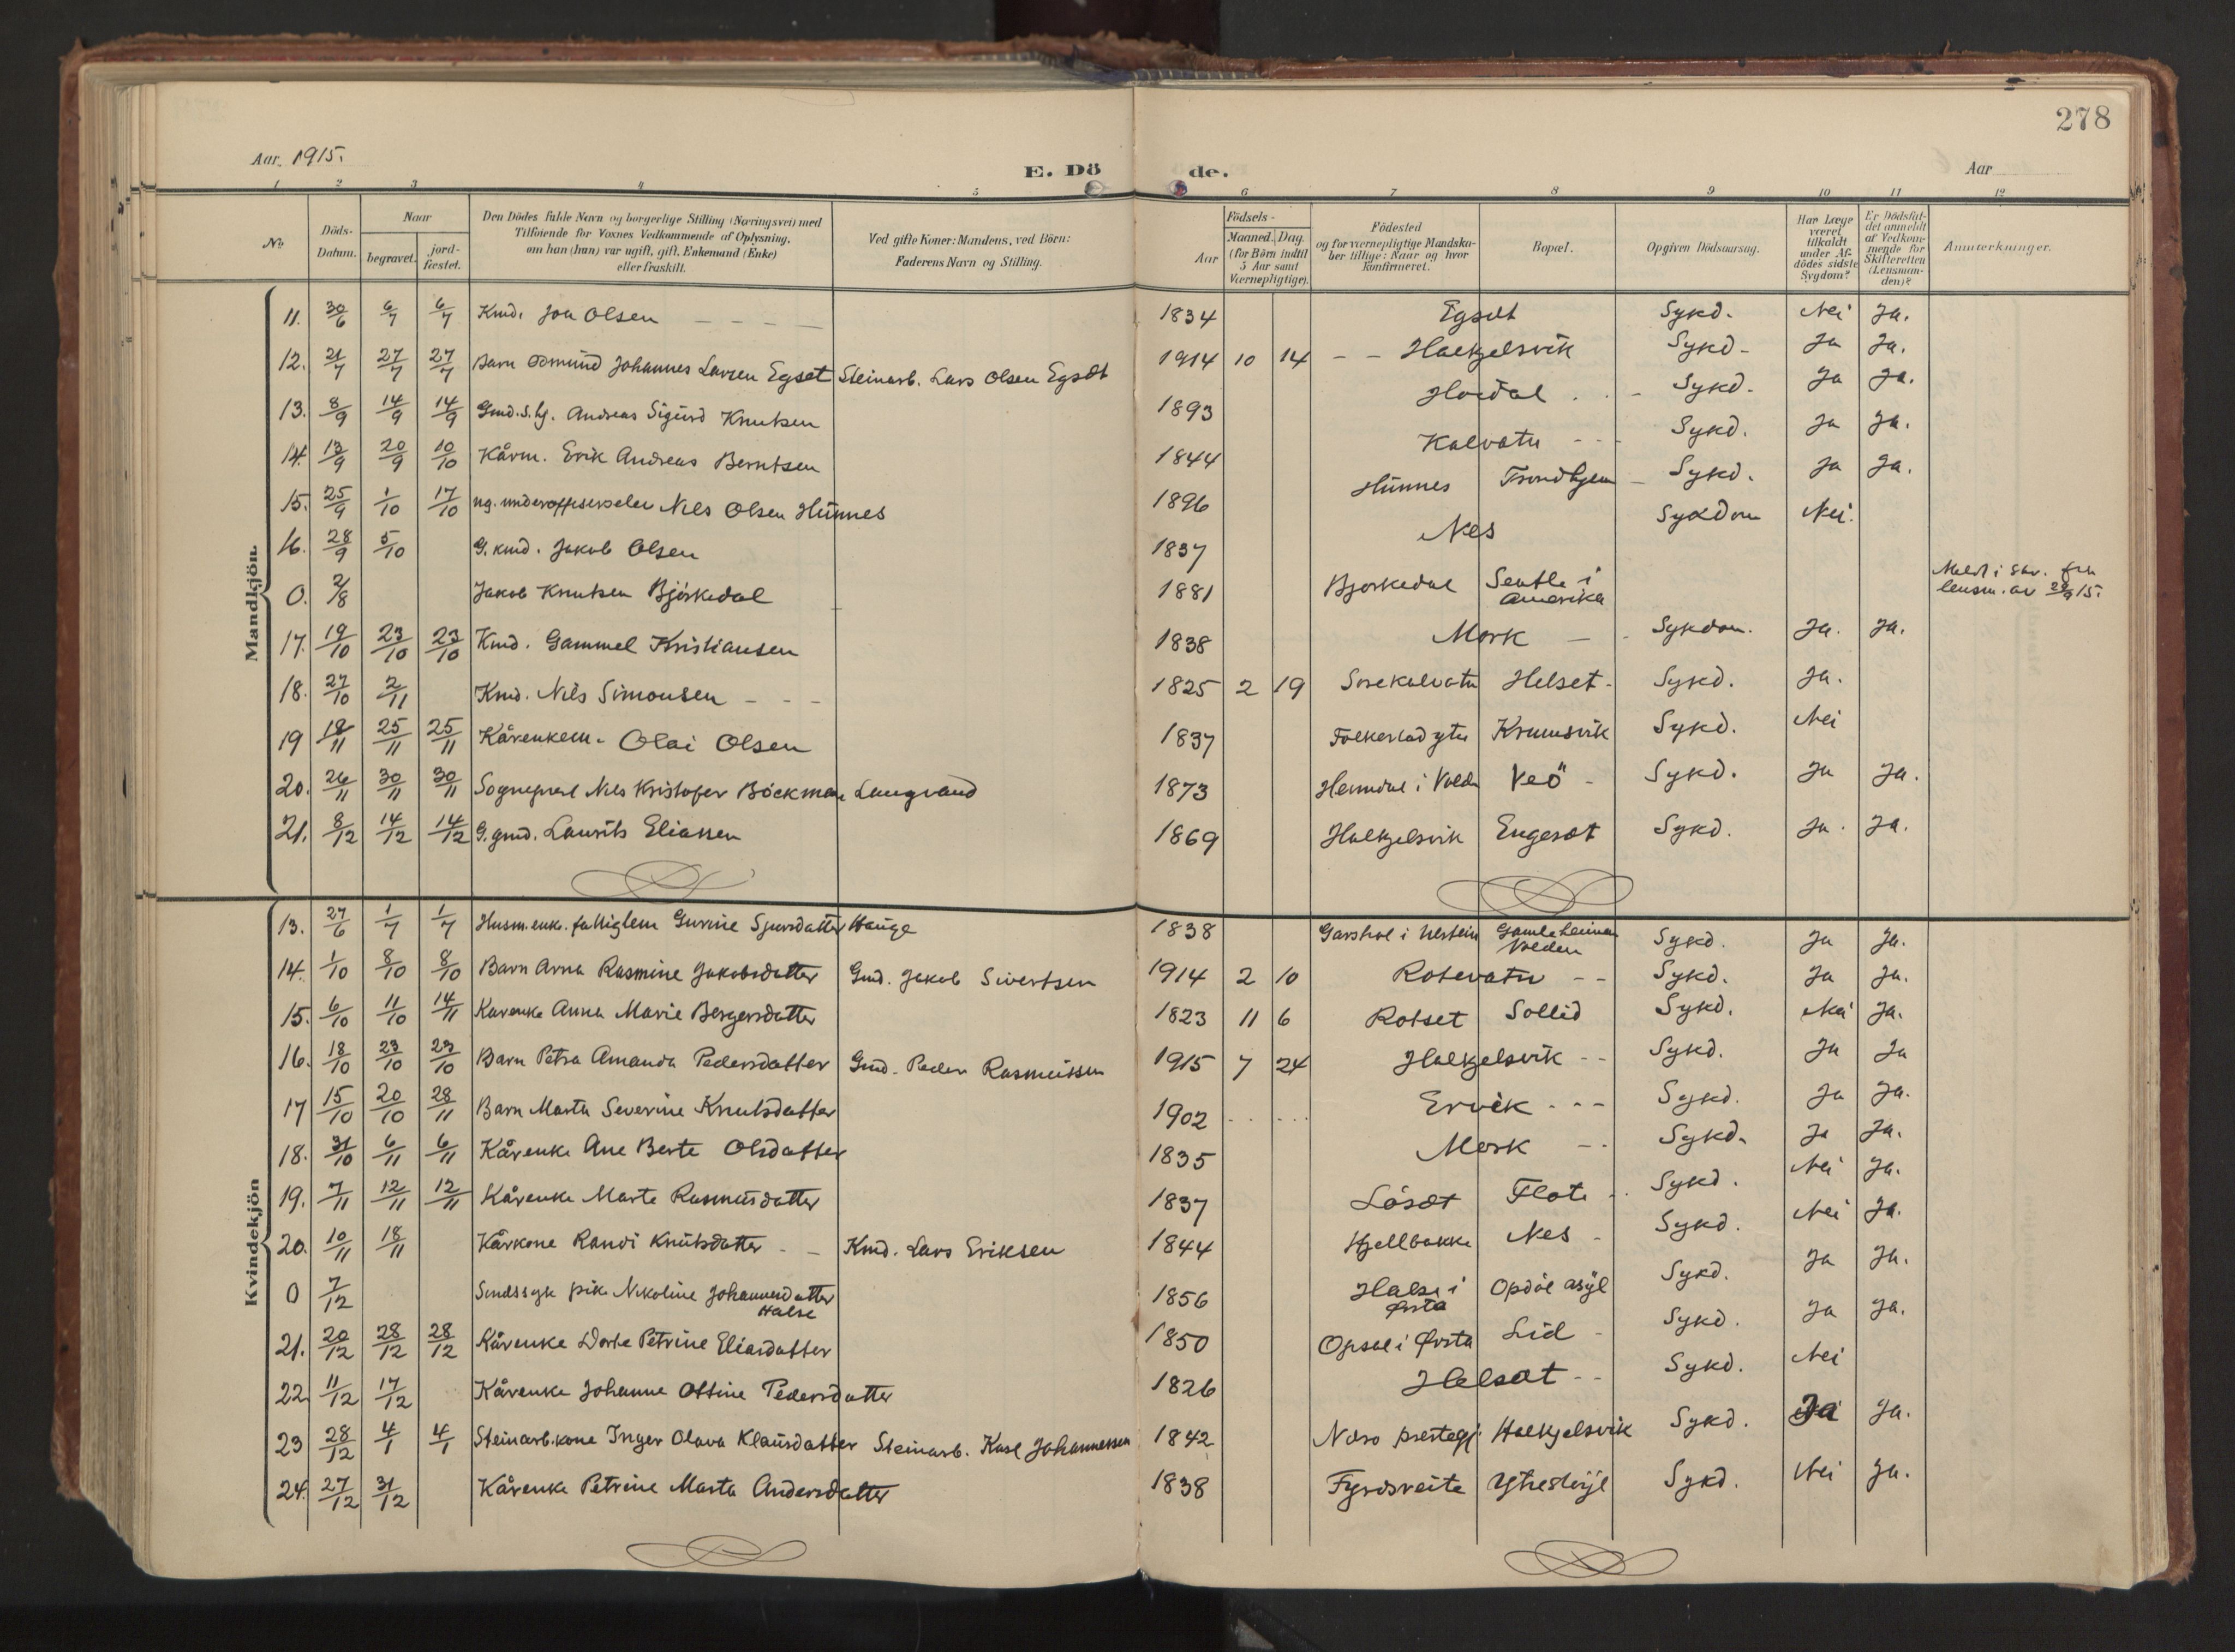 278
Aar. 1915.
E. Dö de.
Aar
1 2 3 4 5 6 7 8 9 10 11 12
No
Döds-Datum.
Naar begravet.
jord-fæstet.
Den Dödes fulde Navn og borgerlige Stilling (Næringsvei) med Tilföiende for Voxnes Vedkommende af Oplysning, om han (hun) var ugift, gift, Enkemand (Enke) eller fraskilt.
Ved gifte Koner: Mandens, ved Börn: Faderens Navn og Stilling.
Födsels-
Aar
Maaned. Dag. (for Börn indtil 5 Aar samt Værnepligtige).
Födested og for værnepligtige Mandskaber tillige: Naar og hvor konfirmeret.
Bopæl.
Opgiven Dödsaarsag.
Har Læge været tilkaldt under Afdödes sidste Sygdom?
Er Dödsfaldet anmeldt af Vedkommende for Skifteretten (Lensmanden)?
Anmærkninger.
Mandkjön.
11. 30/6 6/7 6/7 Kmd. Jon Olsen - - - - 1834 Egset Sykd. Nei Ja.
12. 21/7 27/7 27/7 Barn Odmund Johannes Larsen Egset Steinarb. Lars Olsen Egset 1914 10 14 - - Halkjelsvik Sykd- Ja Ja.
13. 8/9 14/9 14/9 Gmd.s. Andreas Sigurd Knutsen 1893 Hovdal Sykd- Ja Ja.
14. 13/9 20/9 10/10 Kårm. Erik Andreas Berntsen 1844 Kalvatn - - Sykd. Ja Ja.
15. 25/9 1/10 17/10 ug. underoffiserselev Nils Olsen Hunnes 1896 Hunnes Trondhjem - Sykd. Ja Ja.
16. 28/9 5/10 G. kmd. Jakob Olsen 1837 Nes Sykdom Nei.
0. 2/8 Jakob Knutsen Björkedal 1881 Bjorkedal Seatle i Amerika Meldt i skr. fra lensm. av 29/9 15.
17. 19/10 23/10 23/10 Kmd. Gammel Kristiansen 1838 Mork - Sykdom. Ja. Ja.
18. 27/10 2/11 Kmd. Nils Simonsen - - - 1825 2 19 Sorekalvatn Helset- Sykd. Ja.
19 18/11 25/11 25/11 Kårenkem. Olai Olsen 1837 Folkestad ytre Krumsvik Sykd. Nei
20. 26/11 30/11 30/11 Sogneprest Nils Kristofer Böckman Langvand 1873 Heimdal i Volda Veö - Sykd. Ja Ja.
21. 8/12 14/12 14/12 G. gmd. Laurits Eliassen 1869 Halkjelsvik Engeset Sykd. Ja. Ja.
Kvindekjön
13. 27/6 1/7 1/7 Husm.enk. fattiglem Gurine Sjursdatter Hauge 1838 Garshol i Ulstein Gamleheimen Volden Sykd. Ja Ja.
14. 1/10 8/10 8/10 Barn Arna Rasmine Jakobsdatter Gmd. Jakob Sivertsen 1914 2 10 Rotevatn - - Sykd. Ja Ja.
15. 6/10 11/10 14/11 Kårenke Anna Marie Bergersdatter 1823 11 6 Rotset Sollid Sykd. Nei Ja.
16. 18/10 23/10 23/10 Barn Petra Amanda Pedersdatter Gmd. Peder Rasmussen 1915 7 24 Halkjelsvik - - Sykd. Ja Ja
17 15/10 20/10 28/11 Barn Marta Severine Knutsdatter 1902 Ervik - - - Sykd. Ja Ja.
18. 31/10 6/11 6/11 Kårenke Ane Berte Olsdatter 1835 Mork - - Sykd. Ja Ja.
19. 7/11 12/11 12/11 Kårenke Marte Rasmusdatter 1837 Löset Flote - Sykd. Nei Ja.
20. 10/11 18/11 Kårkone Randi Knutsdatter - - Kmd. Lars Eriksen 1844 Hjellbakke Nes - Sykd. Nei Ja.
0 7/12 Sindssyk pike Nikoline Johannesdatter Halse 1856 Halse i Ørsta Opdöl asyl Sykd. Ja Ja.
21. 20/12 28/12 28/12 Kårenke Dorte Petrine Eliasdatter 1850 Opsal i Ørsta Lid - Sykd. Ja Ja.
22. 11/12 17/12 Kårenke Johanne Ottine Pedersdatter 1826 Helset - - Sykd. Nei
23 28/12 4/1 4/1 Steinarb.kone Inger Olava Klausdatter Steinarb. Karl Johannessen 1842 Næro prestegj. Halkjelsvik Sykd. Ja Ja.
24. 27/12 31/12 Kårenke Petrine Marta Andersdatter 1838 Fyrdsreite Ytrestöyl Sykd. Nei Ja.